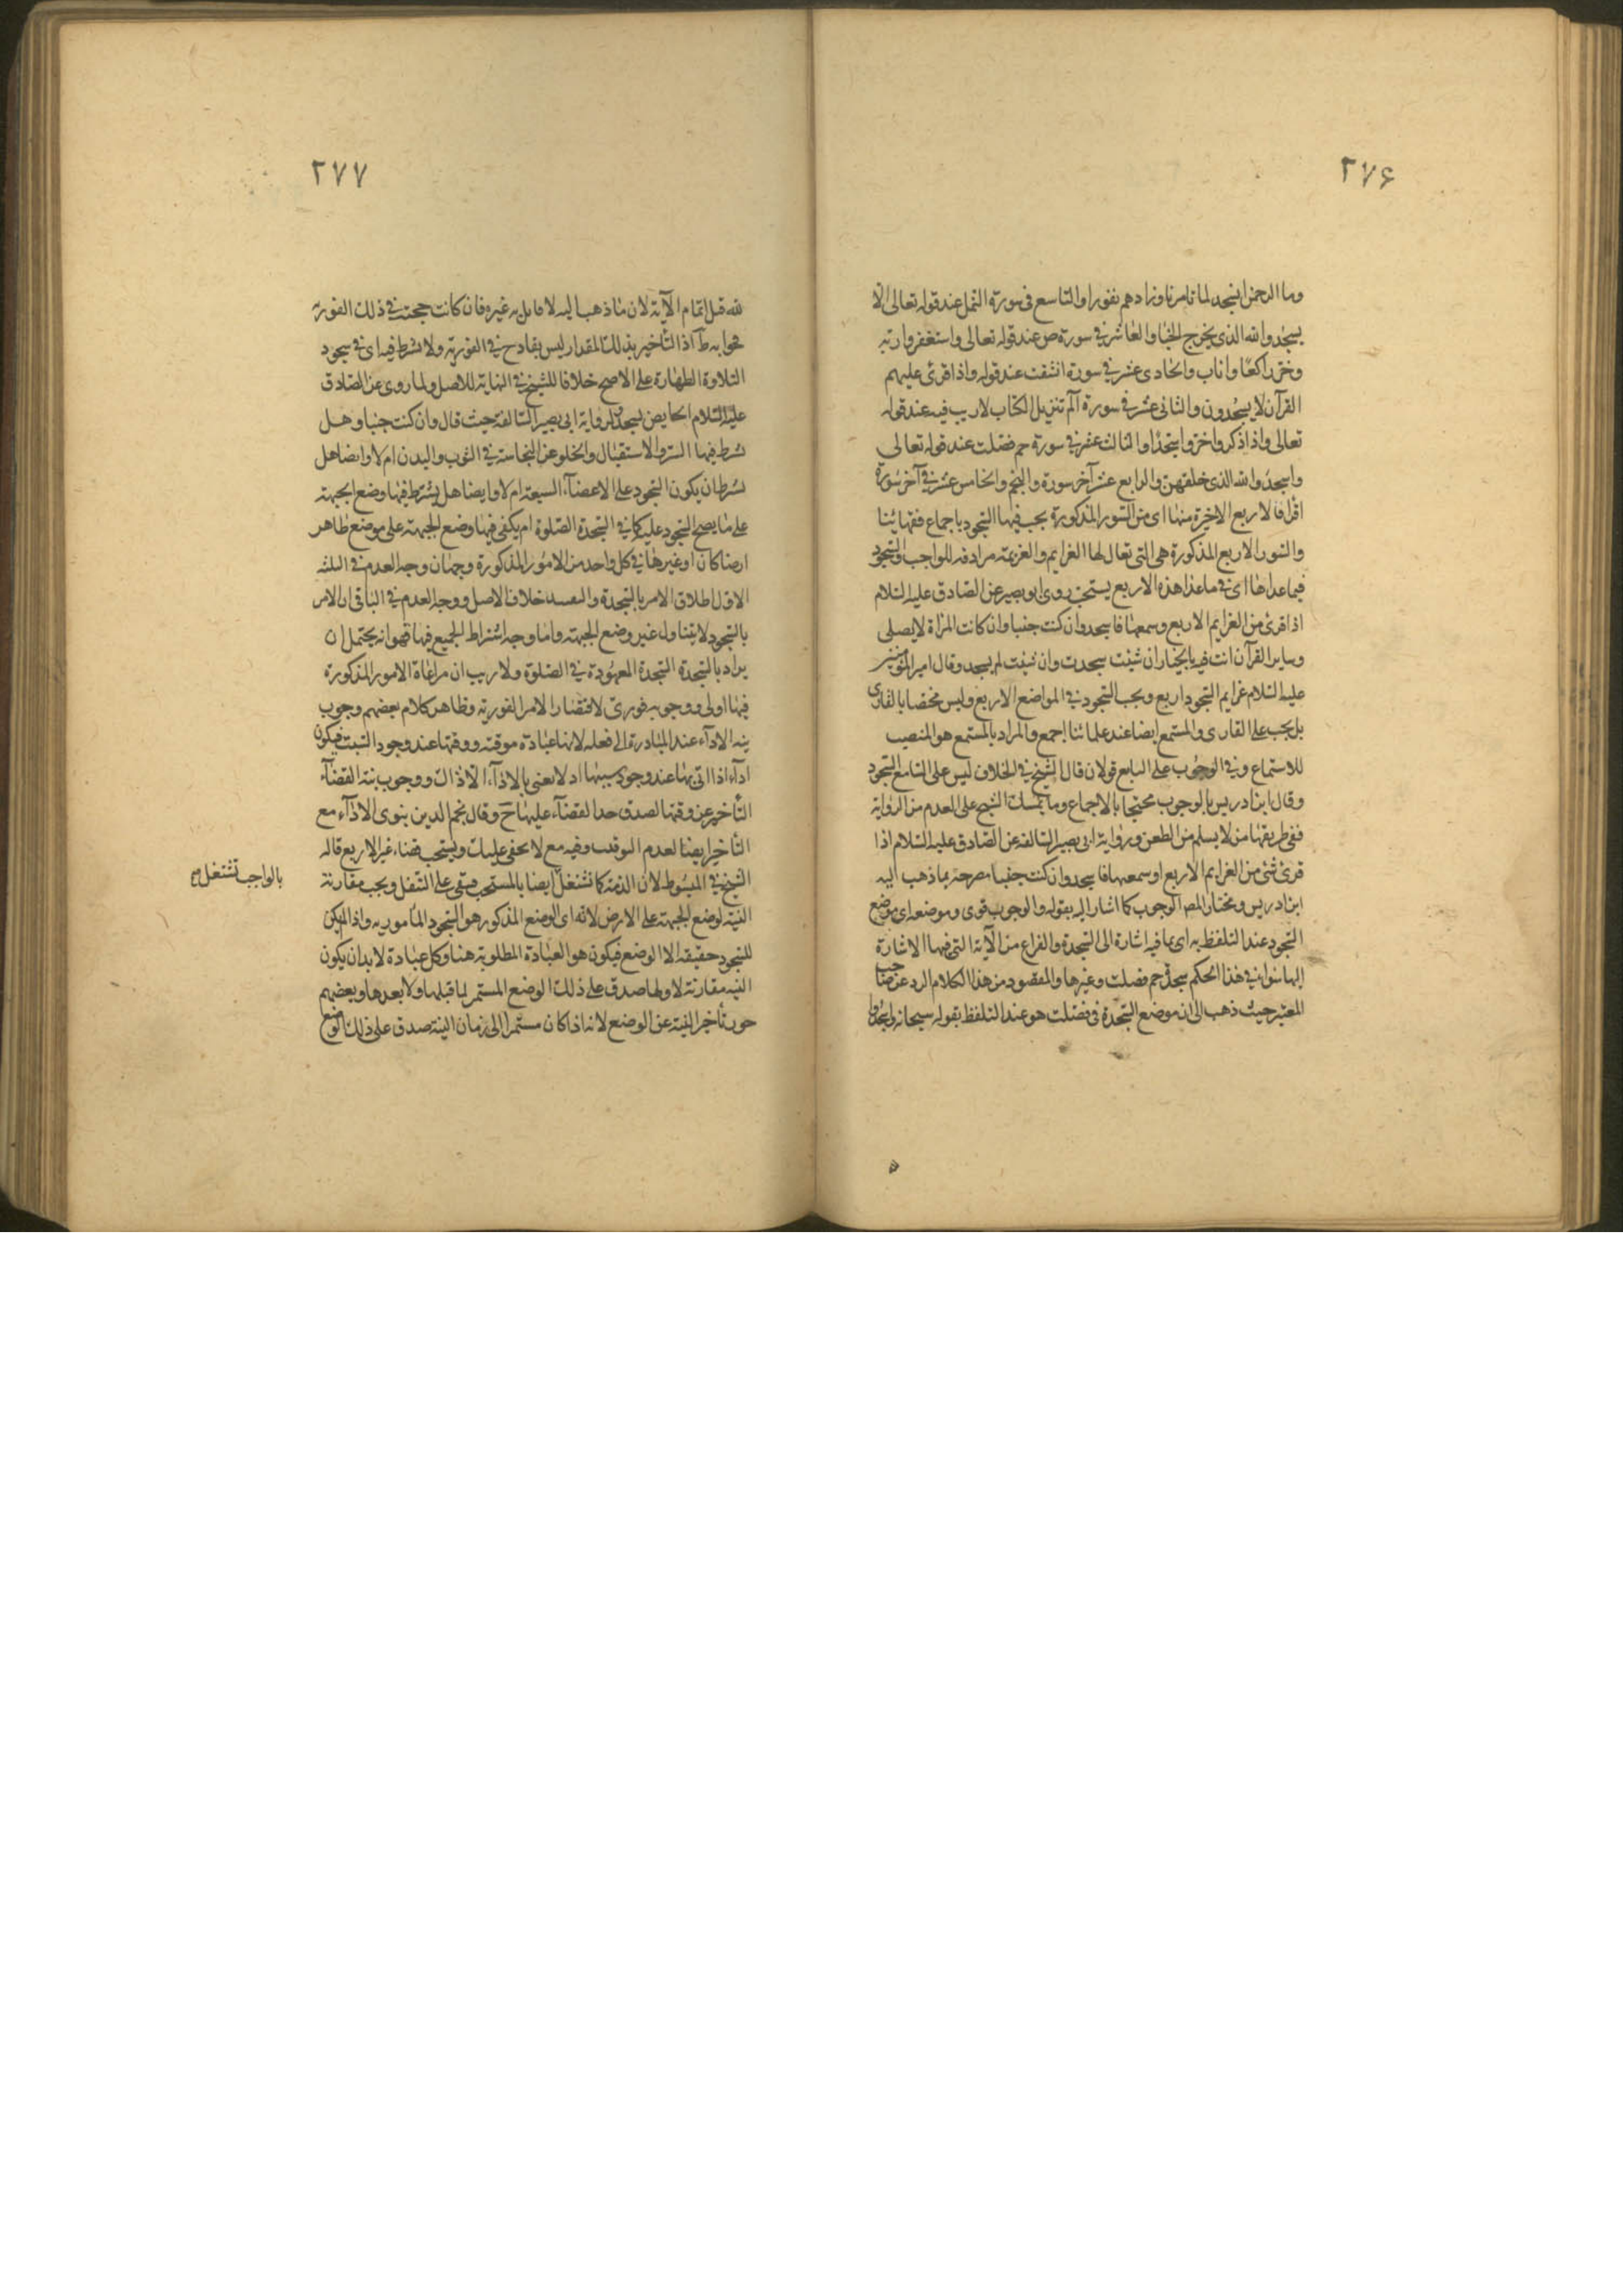 ٢٧۶
وما الرحمن انسجد لما تامرنا وزادهم نفورا والتاسع فى سورة النمل عند قوله تعالى الّا
يسجدوا لله الذى يخرج الخباء والعاشر فى سورة ص عند قوله تعالى واستغفر ربه
وخرّ راكعا واناب والحادى عشر فى سورة انشقت عند قوله واذا قرئ عليهم
القرآن لا يسجدون والثانى عشر فى سورة الم تنزيل الكتاب لا ريب فيه عند قوله
تعالى واذا ذكروا خرّوا سجّدا والثالث عشر فى سورة حم فصّلت عند قوله تعالى
واسجدوا لله الذى خلقهن والرابع عشر آخر سورة والنجم والخامس عشر فى آخر سورة
اقرأ فالاربع الاخيرة منها اى من السور المذكورة يجب فيها السجود باجماع فقهائنا
والسور الاربع المذكورة هى التى تقال لها العزايم والعزيمة مرادفة للواجب والسجود
فيما عداها اى فى ما عدا هذه الاربع يستحب روى ابو بصير عن الصادق عليه السلام
اذا قرئ من العزايم الاربع وسمعتها فاسجد وان كنت جنبا وان كانت المراة لا يصلى
وساير القرآن انت فيه بالخيار ان شئت سجدت وان شئت لم يسجد وقال امير المؤمنين
عليه السلام عزايم السجود اربع ويجب السجود فى المواضع الاربع وليس مختصا بالقارى
بل يجب على القارى والمستمع ايضا عند علمائنا اجمع والمراد بالمستمع هو المنصت
للاستماع وفى الوجوب على السامع قولان قال الشيخ فى الخلاف ليس على السامع السجود
وقال ابن ادريس بالوجوب محتجا بالاجماع وما يتمسك الشيخ على العدم من الرواية
ففى طريقها من لا يسلم من الطعن ورواية ابى بصير السالفة عن الصادق عليه السلام اذا
قرئ شئ من العزايم الاربع او سمعتها فاسجد وان كنت جنبا مصرحة بما ذهب اليه
ابن ادريس ومختار المص الوجوب كما اشار اليه بقوله والوجوب قوى وموضعه اى موضع
السجود عند التلفظ به اى بما فيه اشارة الى السجدة والفراغ من الآية التى فيها الاشارة
اليها سواء فى هذا الحكم سجدة حم فصلت وغيرها والمقصود من هذا الكلام الرد عن صاحب
المعتبر حيث ذهب الى ان موضع السجدة فى فصلت هو عند التلفظ بقوله سبحانه واسجدوا
٢٧٧
لله قبل اتمام الآية لان ما ذهب اليه لا قايل به غيره فان كانت حجته فى ذلك الفورية
فجوابه ظ اذ التأخير بذلك المقدار ليس بقادح فى الفورية ولا يشترط فيه اى فى سجود
التلاوة الطهارة على الاصح خلافا للشيخ فى النهاية للاصل ولما روى عن الصادق
عليه السلام الحايض يسجد ولرواية ابى بصير السالفة حيث قال وان كنت جنبا وهل
يشترط فيها الستر والاستقبال والخلو عن النجاسة فى الثوب والبدن ام لا وايضا هل
يشترط ان يكون السجود على الاعضآء السبعة ام لا وايضا هل يشترط فيها وضع الجبهة
على ما يصح السجود عليه كما فى السجدة الصلوة ام يكفى فيها وضع الجبهة على موضع طاهر
ارضا كان او غيرها فى كل واحد من الامور المذكورة وجهان وجه العدم فى الثلثة
الاول اطلاق الامر بالسجدة والتقييد خلاف الاصل ووجه العدم فى الباقى ان الامر
بالسجود لا يتناول غير وضع الجبهة واما وجه اشتراط الجميع فيها فهو انه يحتمل ان
يراد بالسجدة السجدة المعهودة فى الصلوة ولا ريب ان مراعاة الامور المذكورة
فيها اولى ووجوبه فورىّ لاقتضاء الامر الفورية وظاهر كلام بعضهم وجوب
نية الاداء عند المبادرة الى فعله لانها عبادة موقتة ووقتها عند وجود السبب فيكون
ادآء اذا اتى بها عند وجود سببها اذ لا نعنى بالادآء الّا ذاك ووجوب نية القضآء
التأخير عن وقتها لصدق حد القضآء عليها ح وقال نجم الدين ينوى الادآء مع
التأخير ايضا لعدم التوقيت وفيه مع لا يخفى عليك ويستحب قضاء غير الاربع قاله
الشيخ فى المبسوط لان الذمة كما تشتغل ايضا بالمستحب فيبقى على الشغل ويجب مقارنة
بالواجب تشتغل صح
النية لوضع الجبهة على الارض لانه اى الوضع المذكور هو السجود المأمور به واذا لم يكن
للسجود حقيقة الا الوضع فيكون هو العبادة المطلوبة هنا وكل عبادة لا بد ان يكون
النية مقارنة لاولها صدق على ذلك الوضع المستمر لما قبلها ولا بعدها وبعضهم
جوز تأخير النية عن الوضع لانه اذا كان مستمرا الى زمان النية صدق على ذلك الوضع